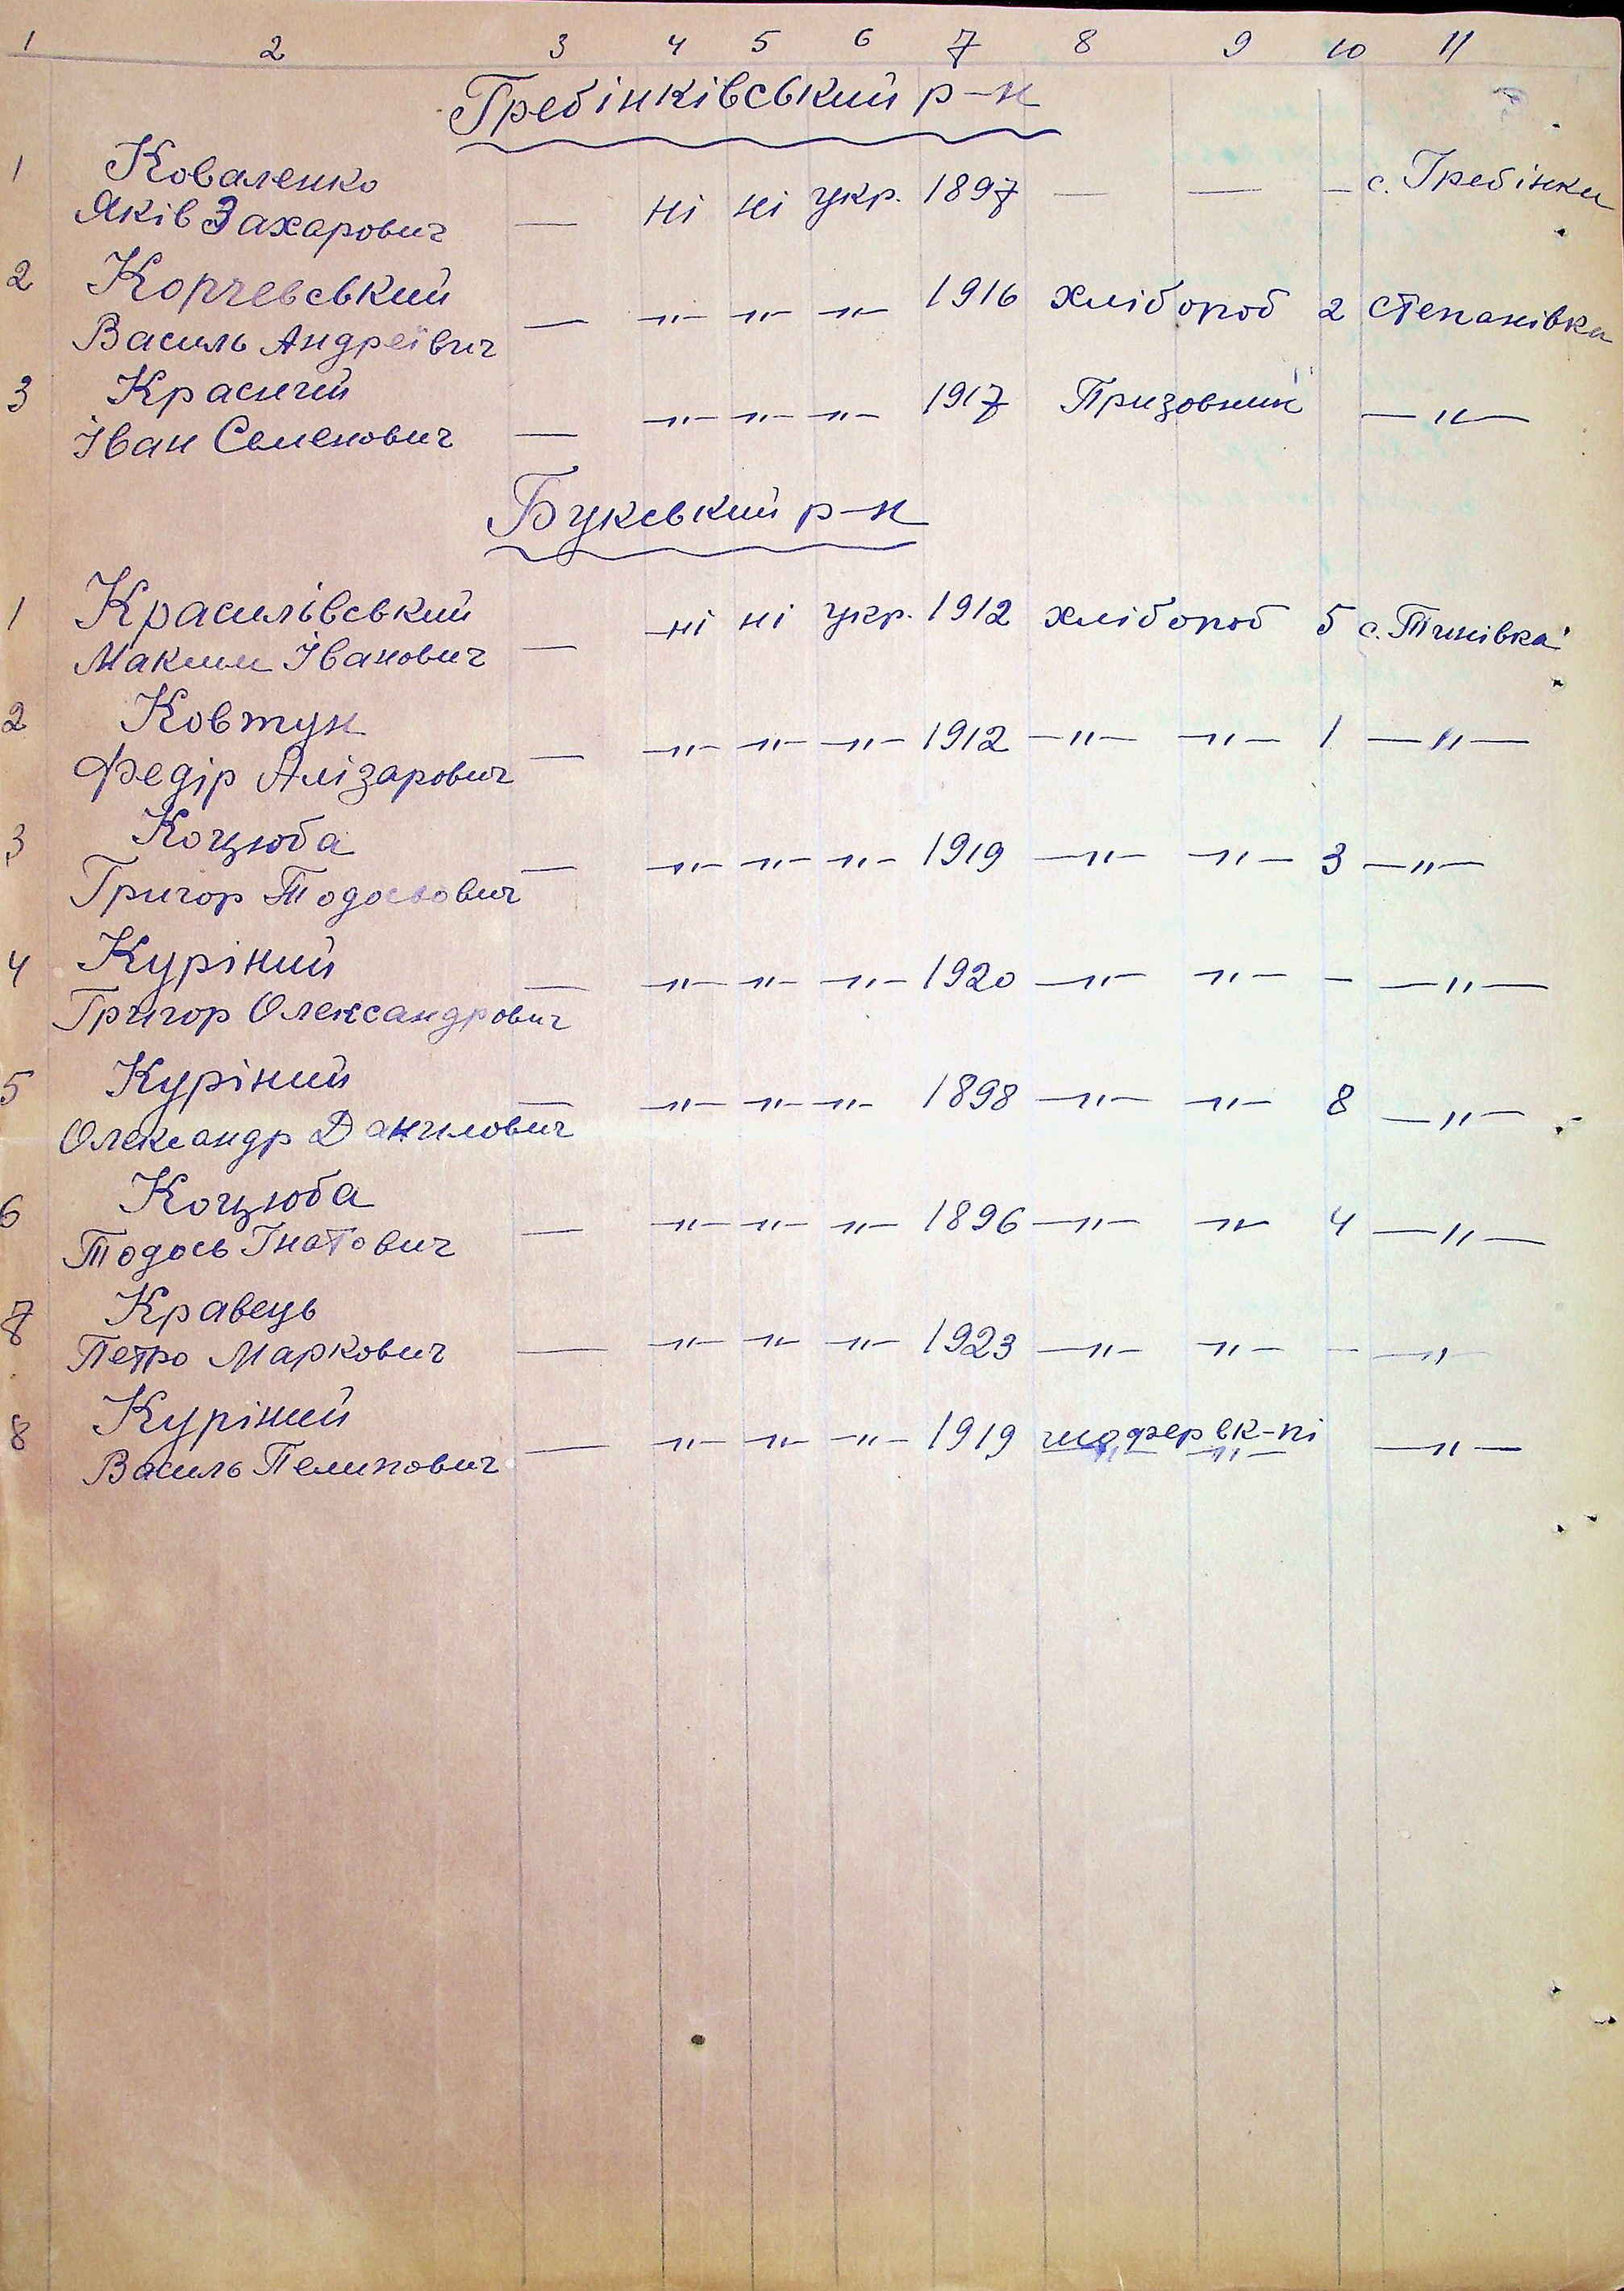 1 2 3 4 5 6 7 8 9 10 11
Гребінківський р-н
1 Коваленко
Яків Захарович — ні ні укр. 1897 — — — с. Гребінки
2 Корчевський
Василь Андреївич — —"— —"— —"— 1916 хлібороб 2 Степанівка
3 Красний
Іван Семенович — —"— —"— —"— 1917 Призовник —"—
Букський р-н
1 Красилівський
Максим Іванович — ні ні укр. 1912 хлібороб 5 с. Тинівка
2 Ковтун
Федір Алізарович — —"— —"— —"— 1912 —"— —"— 1 —"—
3 Коцюба
Григор Тодосьович — —"— —"— —"— 1919 —"— —"— 3 —"—
4 Куріний
Григор Олександрович — —"— —"— —"— 1920 —"— —"— — —"—
5 Куріний
Олександр Данилович — —"— —"— —"— 1898 —"— —"— 8 —"—
6 Коцюба
Тодось Гнатович — —"— —"— —"— 1896 —"— —"— 4 —"—
7 Кравець
Петро Маркович — —"— —"— —"— 1923 —"— —"— — —"—
8 Куріний
Василь Пелипович — —"— —"— —"— 1919 шофер вк-пі —"—
—"— —"—